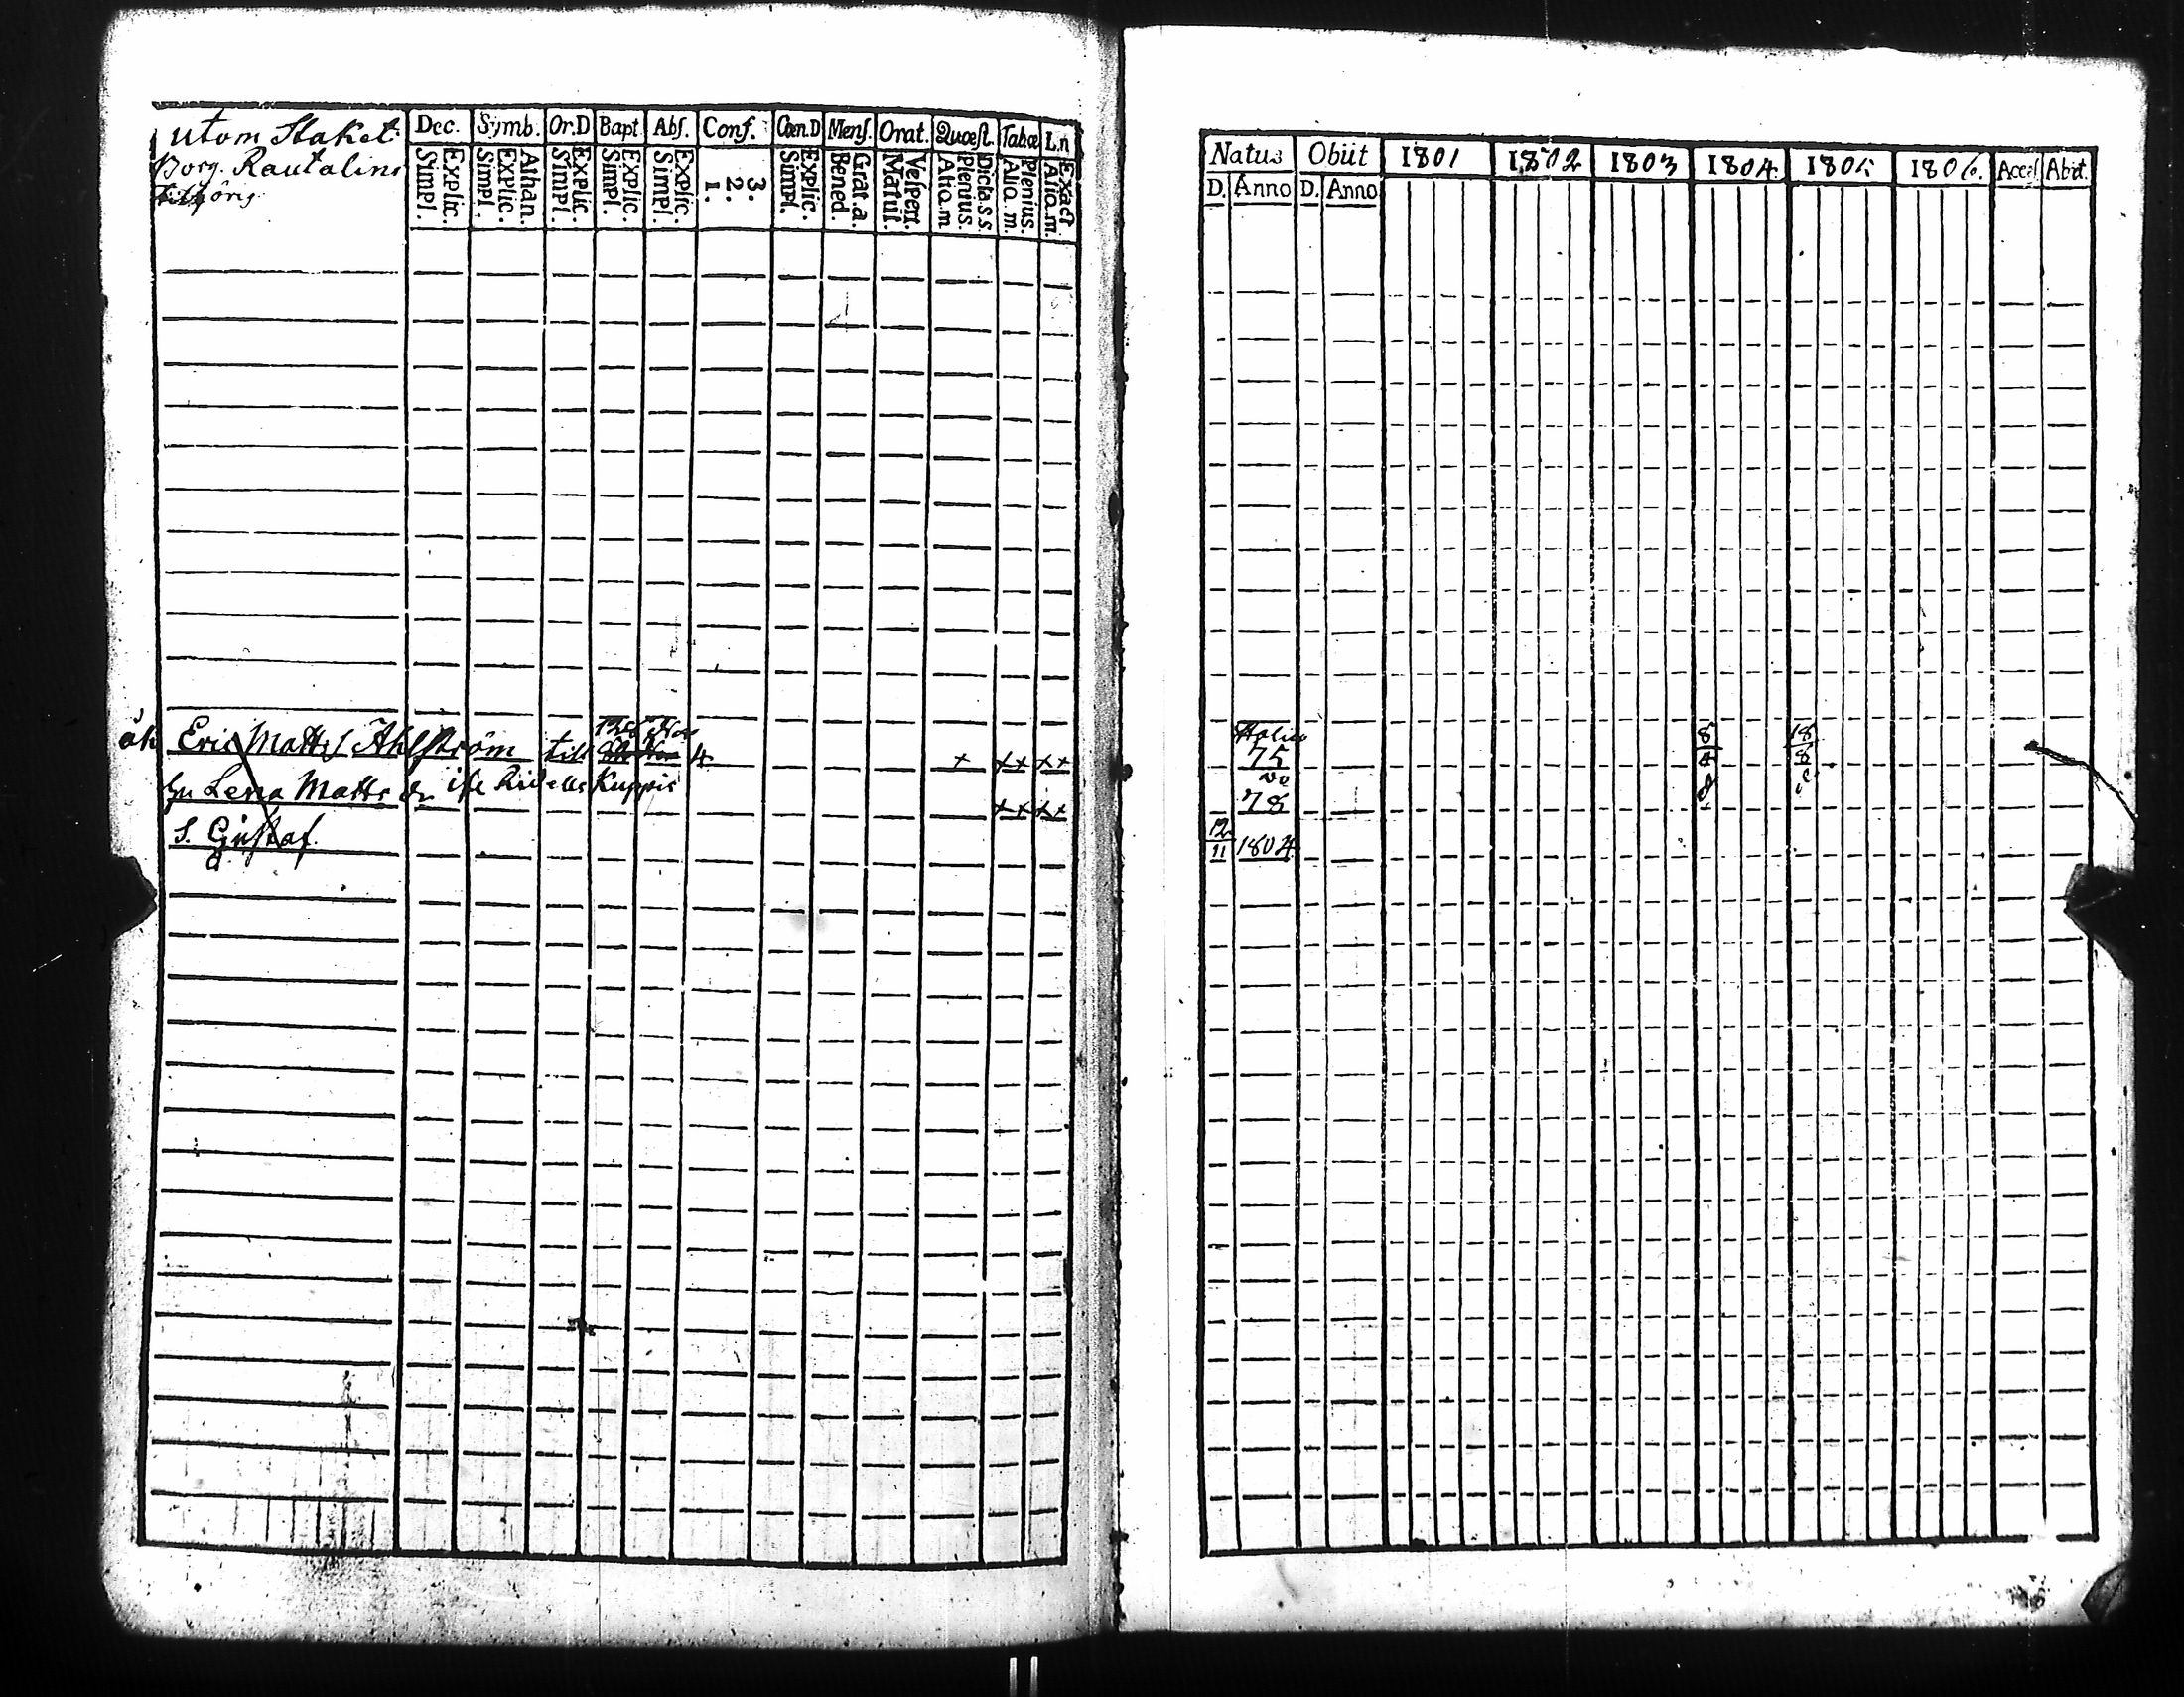 utom Staket
Borg. Rautalins
tilhörig
Dec. Symb. Or.D Bapt. Abs. Conf. Cœn.D Mens. Orat. Quæst. Tabœ L.n
Explic. Simpl. Athan. Explic. Simpl. Explic. Simpl. Explic. Simpl. Explic. Simpl. 3. 2. 1. Explic. Simpl. Grat.a. Bened. Vespert. Matut. Dicta.s.s. Plenius. Aliq.m Plenius. Aliq.m. Exact Aliq.m.
Eric Matts Ahlström till 4 + ++ ++
hu Lena Matts dr Kuppis ++ ++
S. Gustaf.
Natus Obiit 1801 1802 1803 1804 1805 1806. Acces. Abiit.
D. Anno D. Anno
75 8 18 8
78
12 11 1804